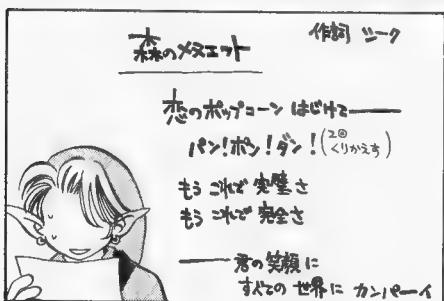 森のメヌエット
作詞 シーク
恋のポップコーン はじけて――
パン！ポン！ダン！（2回くりかえす）
もう これで 完璧さ
もう これで 完全さ
――君の笑顔に
すべての 世界に カンパーイ